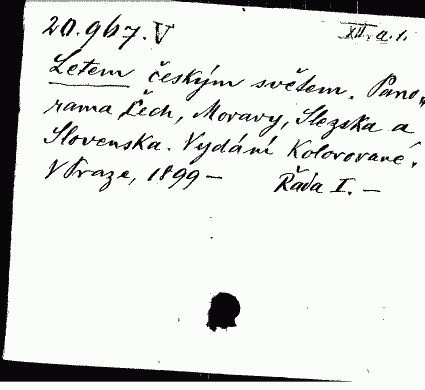 20.967.V
XII.a.1.
Letem českým světem. Pano„
rama Čech, Moravy, Slezska a
Slovenska. Vydání kolorované.
V Praze, 1899 – Řada I. –